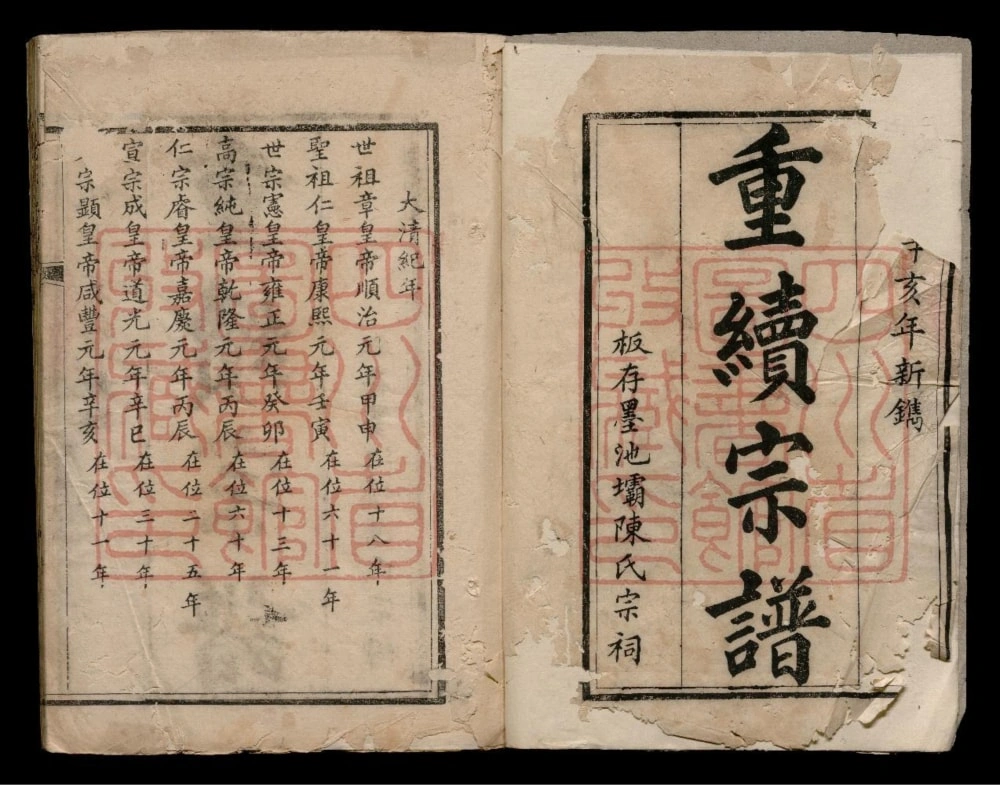 亥年新鐫
重續宗譜
板存墨池壩陳氏宗祠
大清紀年
世祖章皇帝順治元年甲申在位十八年
聖祖仁皇帝康熙元年壬寅在位六十一年
世宗憲皇帝雍正元年癸卯在位十三年
高宗純皇帝乾隆元年丙辰在位六十年
仁宗睿皇帝嘉慶元年丙辰在位二十五年
宣宗成皇帝道光元年辛巳在位三十年
宗顯皇帝咸豐元年辛亥在位十一年
四川省
圖書館